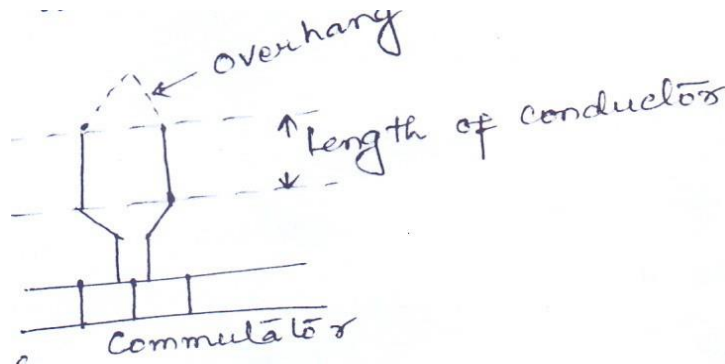 Overhang
Length of conductor
Commutator